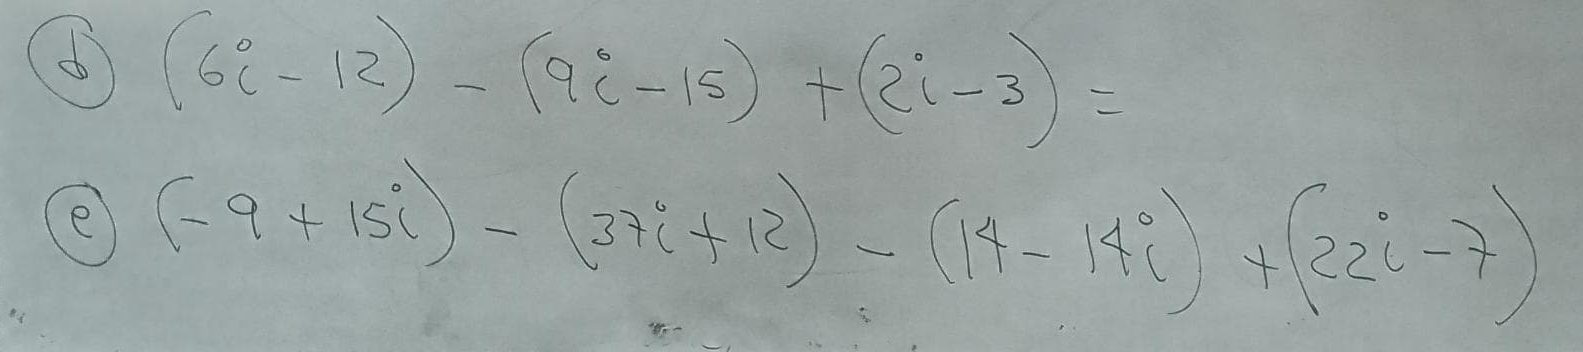 d) (6i - 12) - (9i - 15) + (2i - 3) =
e) (-9 + 15i) - (37i + 12) - (14 - 14i) + (22i - 7)